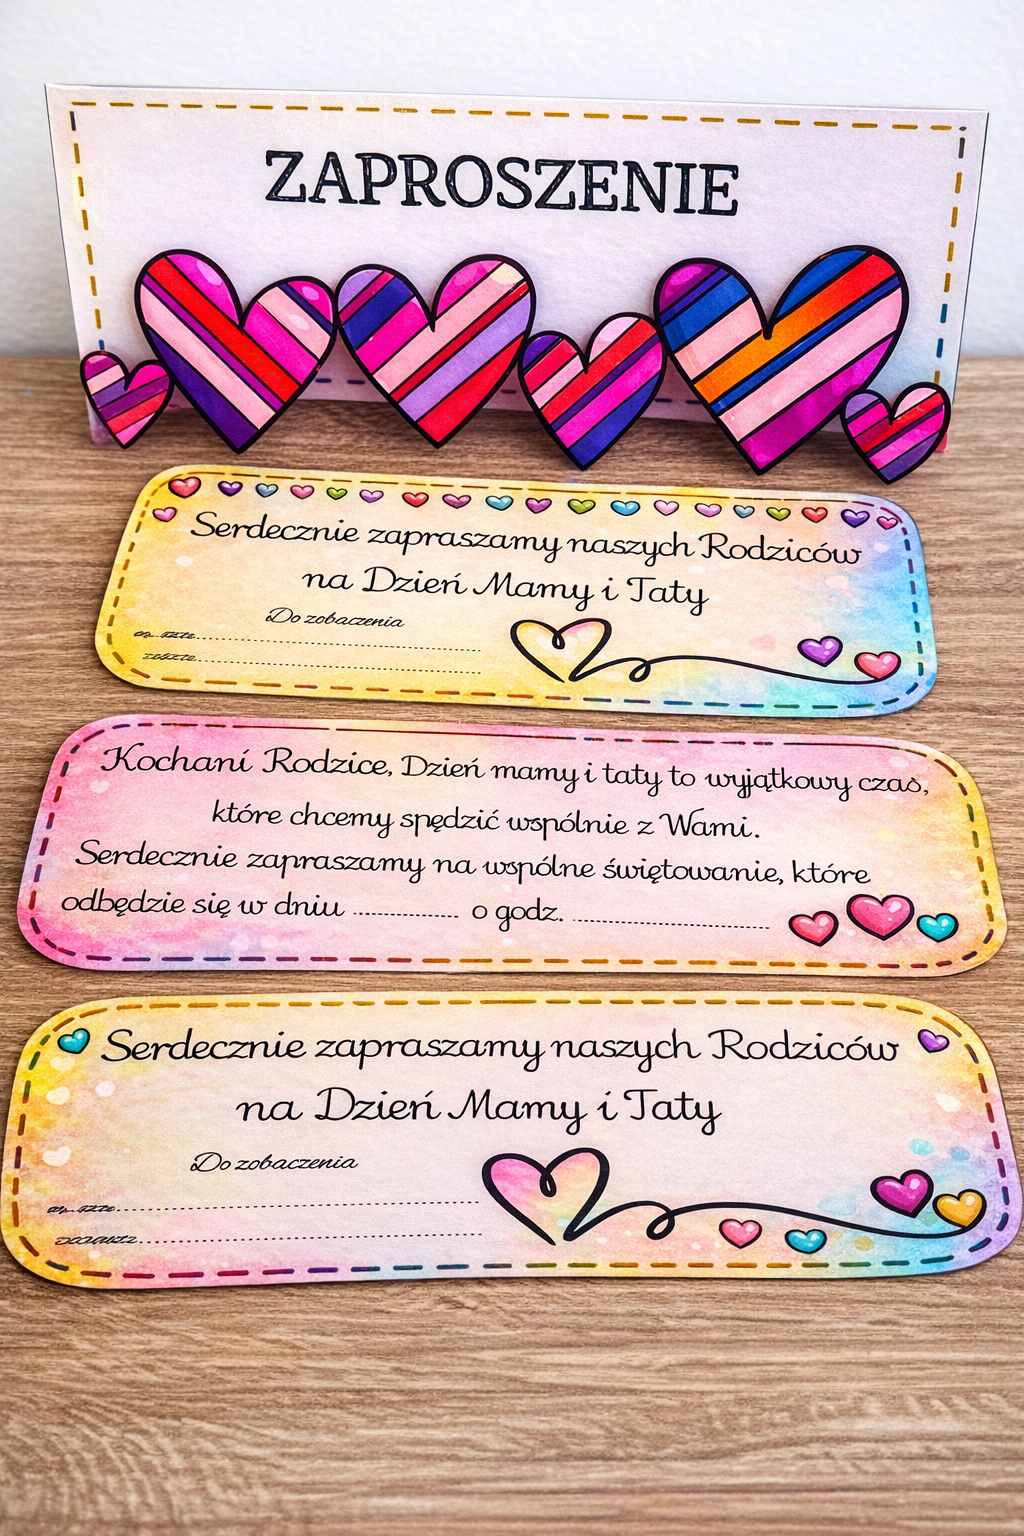 ZAPROSZENIE
Serdecznie zapraszamy naszych Rodziców
na Dzień Mamy i Taty
Do zobaczenia
Kochani Rodzice, Dzień mamy i taty to wyjątkowy czas,
które chcemy spędzić wspólnie z Wami.
Serdecznie zapraszamy na wspólne świętowanie, które
odbędzie się w dniu .................... o godz. ....................
Serdecznie zapraszamy naszych Rodziców
na Dzień Mamy i Taty
Do zobaczenia